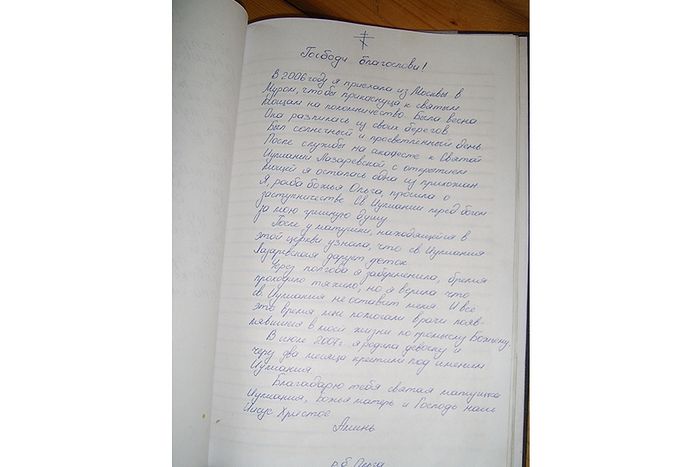 Господи благослови!
В 2006 году я приехала из Москвы в
Муром, чтобы прикоснуца к святым
мощам на поломничество. Была весна
Ока разлилась из своих берегов.
Был солнечный и просветленный день.
После службы на акафесте к Святой
Иулиании Лазаревской, с открытием
мощей я осталась одна из прихожан.
Я, раба божья Ольга, просила о
заступничестве Св Иулиании перед богом
за мою грешную душу.
После у матушки, находящейся в
этой церкви узнала, что св. Иулиания
Лазаревская дарует деток.
Через полгода я забеременила, бремя
проходило тяжело, но я верила что
св. Иулиания не оставит меня. И все
это время мне помогали врачи появ-
лявшиеся в моей жизни по промыслу Божьему
В июле 2007г. я родила девочку и
через два месяца крестили под именем
Иулиания.
Благадарю тебя святая матушка
Иулиания, Божья матерь и Господь наш
Иисус Христос.
Аминь
р.б. Ольга